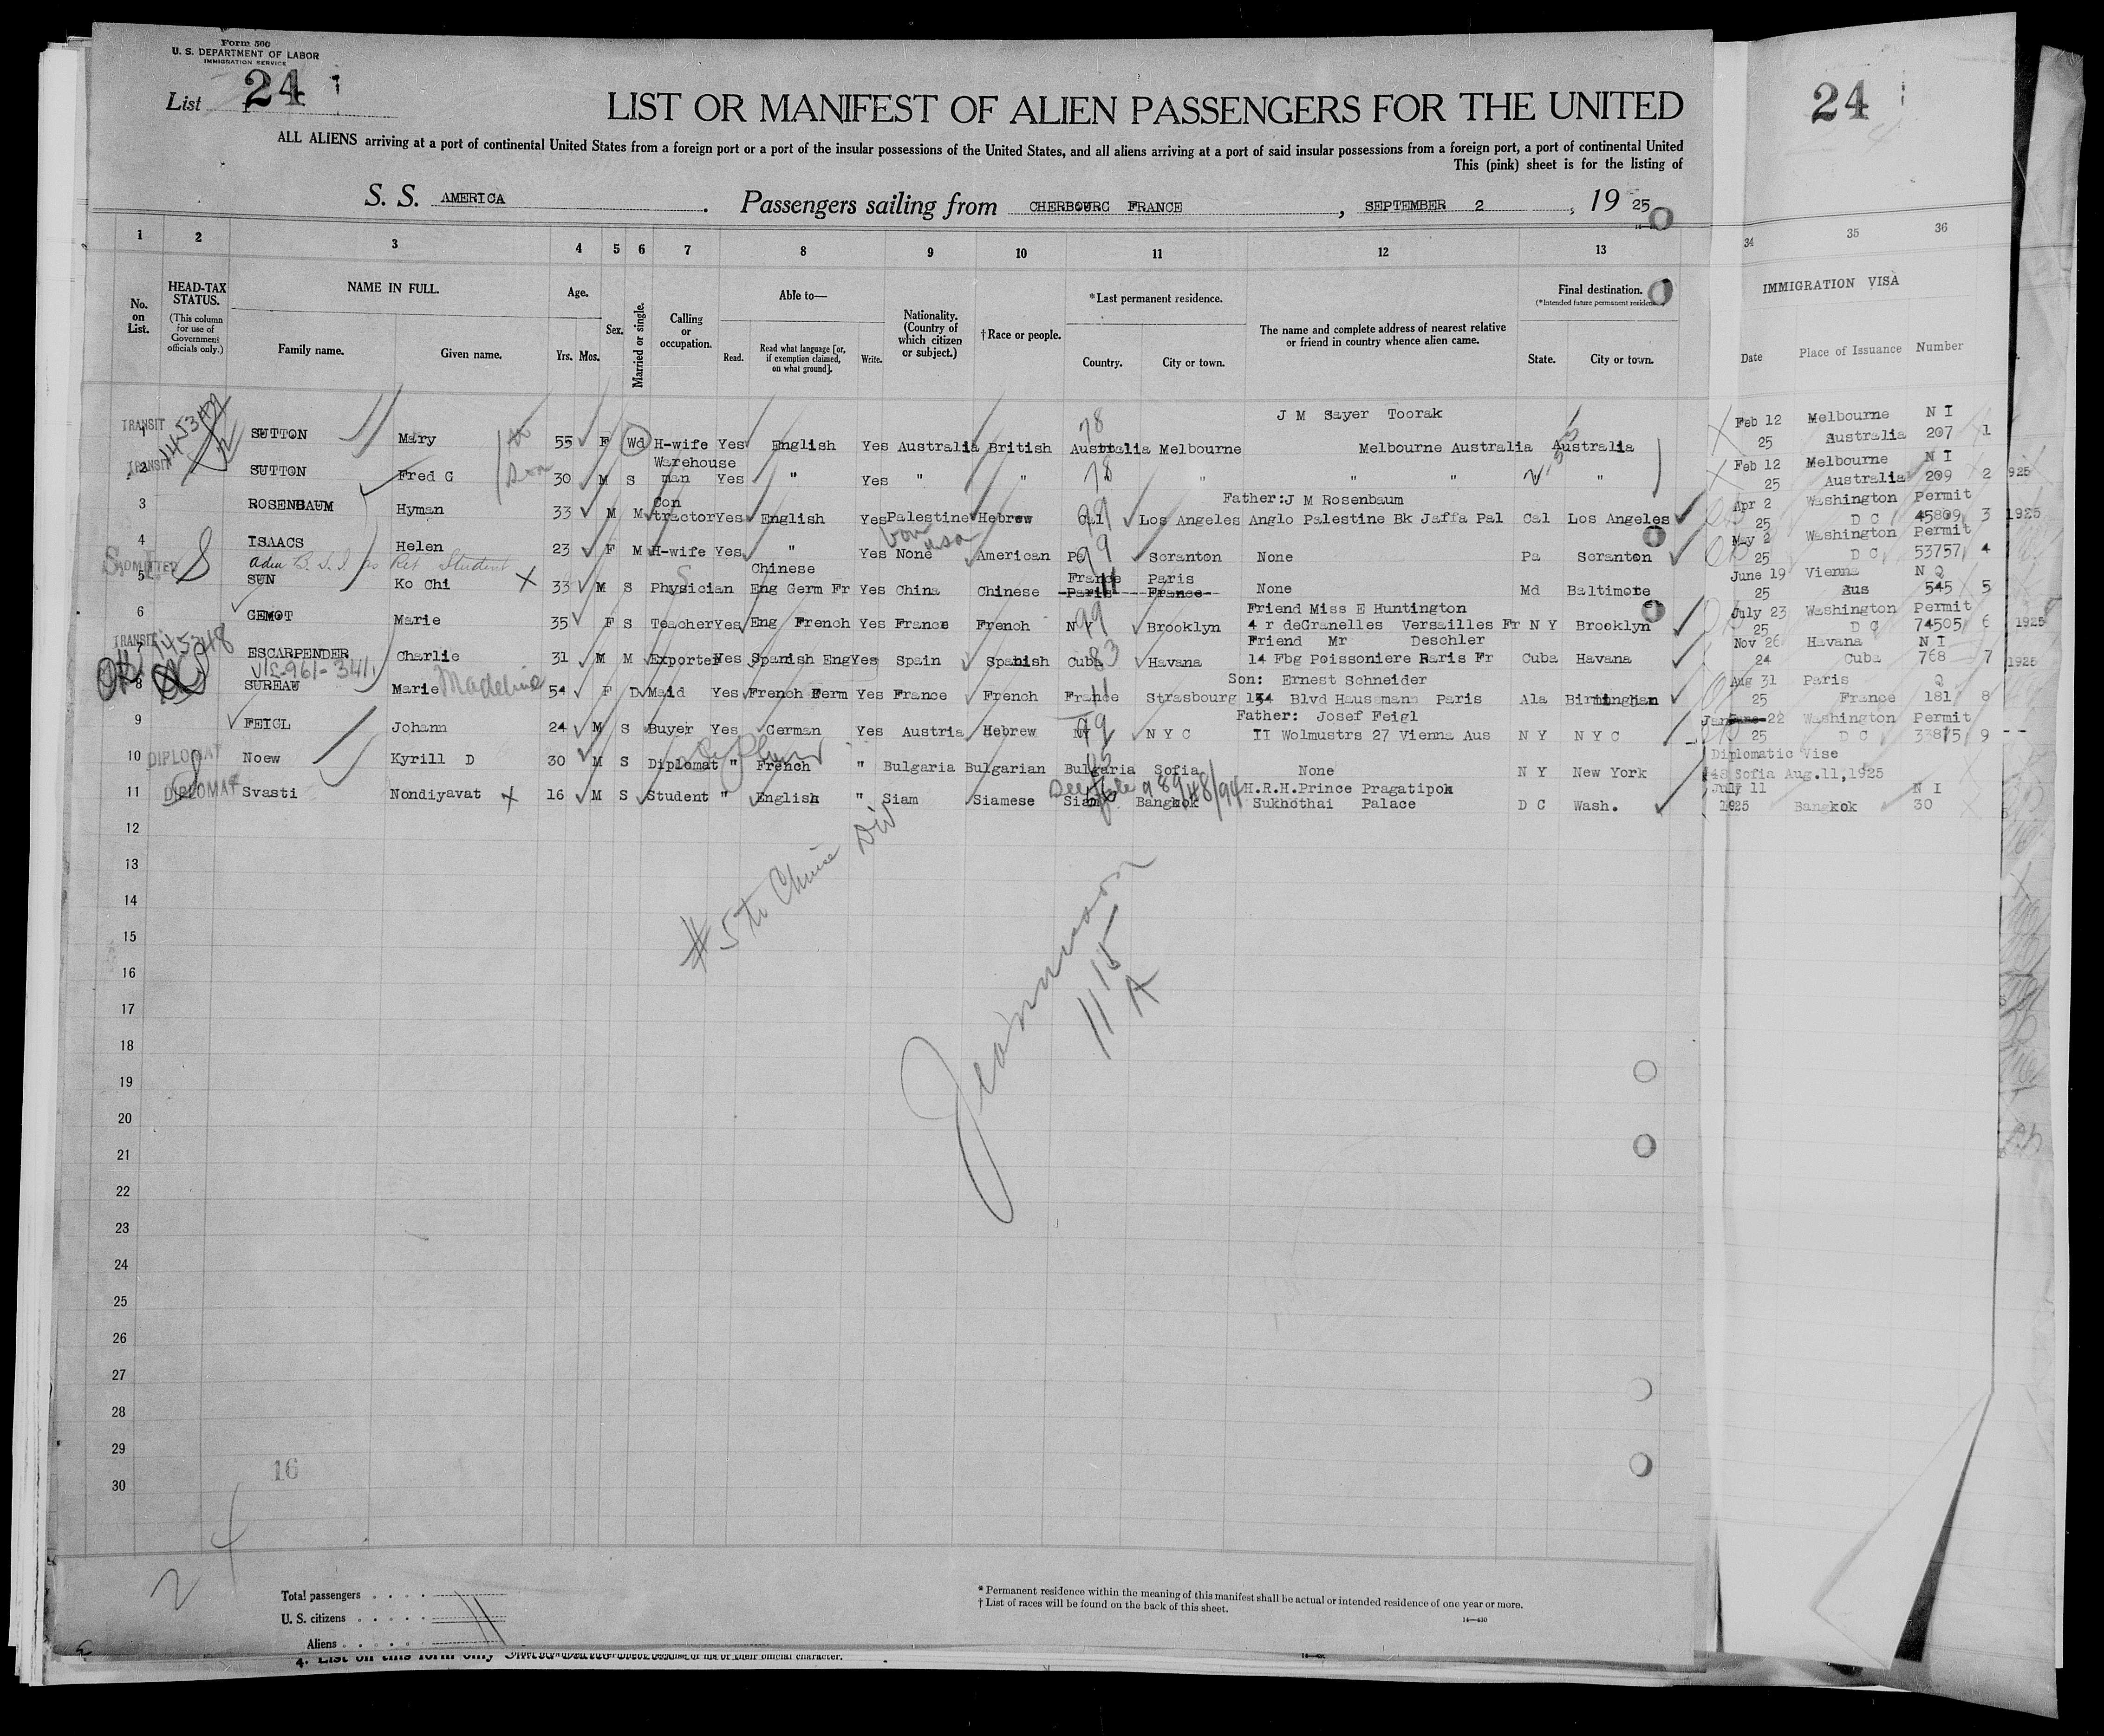 Form 500
U. S. DEPARTMENT OF LABOR
IMMIGRATION SERVICE
List 24
24
LIST OR MANIFEST OF ALIEN PASSENGERS FOR THE UNITED
ALL ALIENS arriving at a port of continental United States from a foreign port or a port of the insular possessions of the United States, and all aliens arriving at a port of said insular possessions from a foreign port, a port of continental United
This (pink) sheet is for the listing of
S. S. AMERICA. Passengers sailing from CHERBOURG FRANCE, SEPTEMBER 2, 19 25
1 2 3 4 5 6 7 8 9 10 11 12 13 34 35 36
No. on List.
HEAD-TAX STATUS.
(This column for use of Government officials only.)
NAME IN FULL.
Family name. Given name.
Age.
Yrs. Mos.
Sex.
Married or single.
Calling or occupation.
Able to—
Read. Read what language [or, if exemption claimed, on what ground]. Write.
Nationality. (Country of which citizen or subject.)
†Race or people.
*Last permanent residence.
Country. City or town.
The name and complete address of nearest relative or friend in country whence alien came.
Final destination.
(*Intended future permanent residence.)
State. City or town.
IMMIGRATION VISA
Date Place of Issuance Number
J M Sayer Toorak Feb 12 Melbourne N I
TRANSIT 1 SUTTON Mary 55 F Wd H-wife Yes English Yes Australia British Australia Melbourne Melbourne Australia Australia 25 Australia 207 1
78
Warehouse Feb 12 Melbourne N I
TRANSIT 2 SUTTON Fred G Son 30 M S man Yes " Yes " " " " " " " 25 Australia 209 2 1925
78
Con Father:J M Rosenbaum Apr 2 Washington Permit
3 ROSENBAUM Hyman 33 M M tractor Yes English Yes Palestine Hebrew Cal Los Angeles Anglo Palestine Bk Jaffa Pal Cal Los Angeles 25 D C 45809 3 1925
99
May 2 Washington Permit
4 ISAACS Helen 23 F M H-wife Yes " Yes None American Pa Scranton None Pa Scranton 25 D C 53757 4
99
ADMITTED
Adm B.S.I. as Ret Student
Chinese France Paris June 19 Vienna N Q
5 SUN Ko Chi 33 M S Physician Eng Germ Fr Yes China Chinese Paris France None Md Baltimore 25 Aus 545 5
11
Friend Miss E Huntington July 23 Washington Permit
6 GEMOT Marie 35 F S Teacher Yes Eng French Yes France French N Y Brooklyn 4 r deGranelles Versailles Fr N Y Brooklyn 25 D C 74505 6 1925
99
Friend Mr Deschler Nov 26 Havana N I
TRANSIT 7 ESCARPENDER Charlie 31 M M Exporter Yes Spanish Eng Yes Spain Spanish Cuba Havana 14 Fbg Poissoniere Paris Fr Cuba Havana 24 Cuba 768 7 1925
83
Son: Ernest Schneider Aug 31 Paris Q
8 SUREAU Marie Madeline 54 F D Maid Yes French Germ Yes France French France Strasbourg 134 Blvd Haussmann Paris Ala Birmingham 25 France 181 8
11
Father: Josef Feigl Jan June 22 Washington Permit
9 FEICL Johann 24 M S Buyer Yes German Yes Austria Hebrew NY N Y C II Wolmustrs 27 Vienna Aus N Y N Y C 25 D C 33875 9
99
Diplomatic Vise
10 DIPLOMAT Noew Kyrill D 30 M S Diplomat " French " Bulgaria Bulgarian Bulgaria Sofia None N Y New York 48 Sofia Aug.11,1925
H.R.H.Prince Pragatipok July 11 N I
11 DIPLOMAT Svasti Nondiyavat 16 M S Student " English " Siam Siamese Siam Bangkok Sukhothai Palace D C Wash. 1925 Bangkok 30
12
13
14
# 5 to Chinese Div
15
16
17
1115
A
18
19
20
21
22
23
24
25
26
27
28
29
16
30
Total passengers
U. S. citizens 11
Aliens
* Permanent residence within the meaning of this manifest shall be actual or intended residence of one year or more.
† List of races will be found on the back of this sheet.
14—430